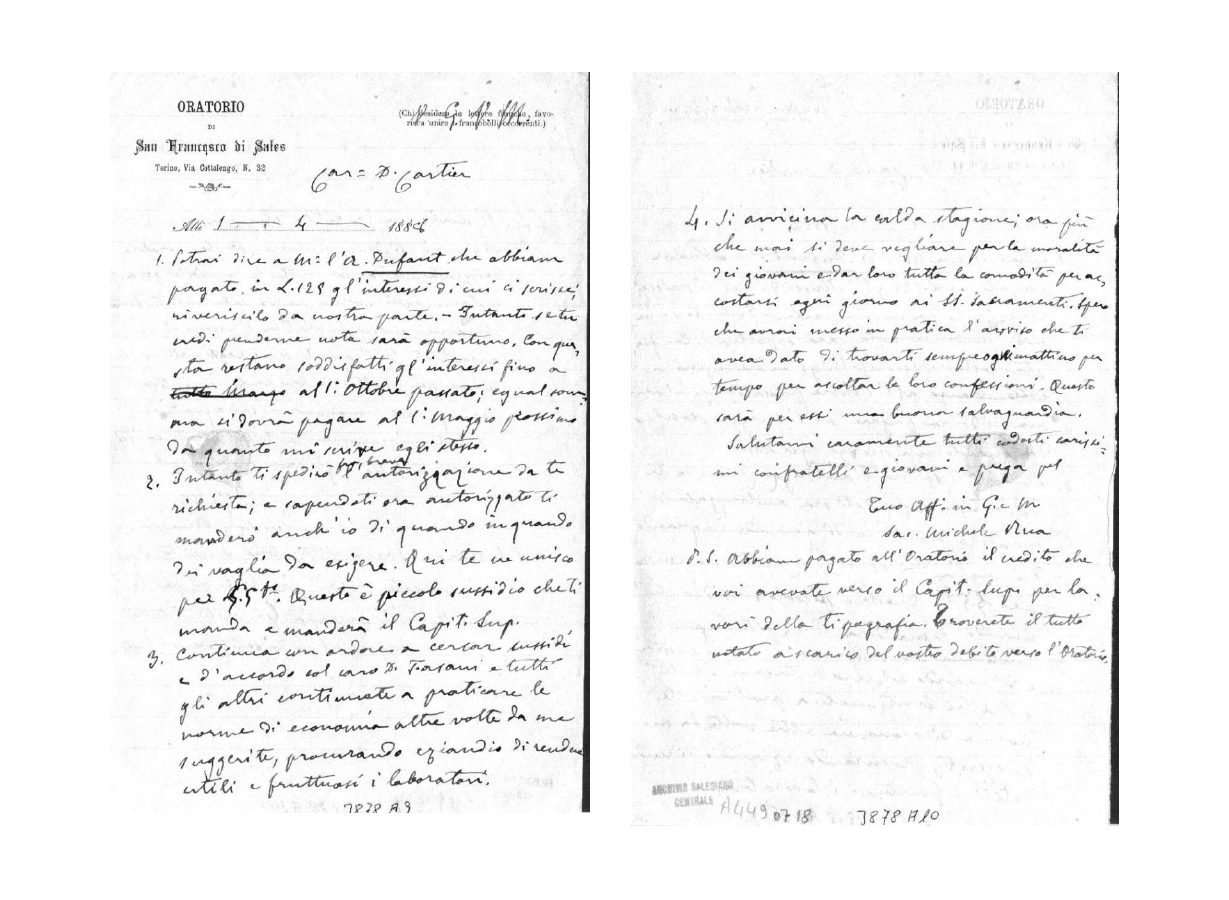 ORATORIO
DI
San Francesco di Sales
Torino, Via Cottolengo, N. 32
(Chi desidera le lettere franche, favo-
risca unire i francobolli occorrenti.)
Car= D. Cartier
Alli 1 — 4 — 1886
1. Potrai dire a M: l'a. Dufant che abbiam
pagato in L. 125 gl'interessi di cui ci scrisse;
riveriscilo da nostra parte. – Intanto se tu
credi prenderne nota sarà opportuno. Con que,
sta restano soddisfatti gl'interessi fino a
tutto Marzo al 1: Ottobre passato; egual som=
ma si dovrà pagare al 1: Maggio prossimo
da quanto mi scrive egli stesso.
2. Intanto ti spedirò l'autorizzazione da te
richiesta; e sapendoti ora autorizzato ti
manderò anch'io di quando in quando
dei vaglia da esigere. Qui te ne unisco
per Questo è piccolo sussidio che ti
manda e manderà il Capit. Sup.
3. Continua con ardore a cercar sussidi
e d'accordo col caro D. Fasani e tutti
gli altri continuate a praticare le
norme di economia altre volte da me
suggerite, procurando eziandio di rendere
utili e fruttuosi i laboratori.
3878 A9
4. Si avvicina la calda stagione; ora più
che mai si deve vegliare per la moralità
dei giovani e dar loro tutta la comodità per ac,
costarsi ogni giorno ai SS. Sacramenti. Spero
che avrai messo in pratica l'avviso che ti
avea dato di trovarti sempre ogni mattino per
tempo per ascoltar le loro confessioni. Questo
sarà per essi una buona salvaguardia.
Salutami caramente tutti codesti carissi=
mi confratelli e giovani e prega pel
Tuo Aff. in G. e M
Sac. Michele Rua
P.S. Abbiam pagato all'Oratorio il credito che
voi avevate verso il Capit. Sup. per la,
vori della tipografia. Troverete il tutto
notato a scarico del vostro debito verso l'Oratorio.
ARCHIVIO SALESIANO
CENTRALE
A4490718
3878 A10